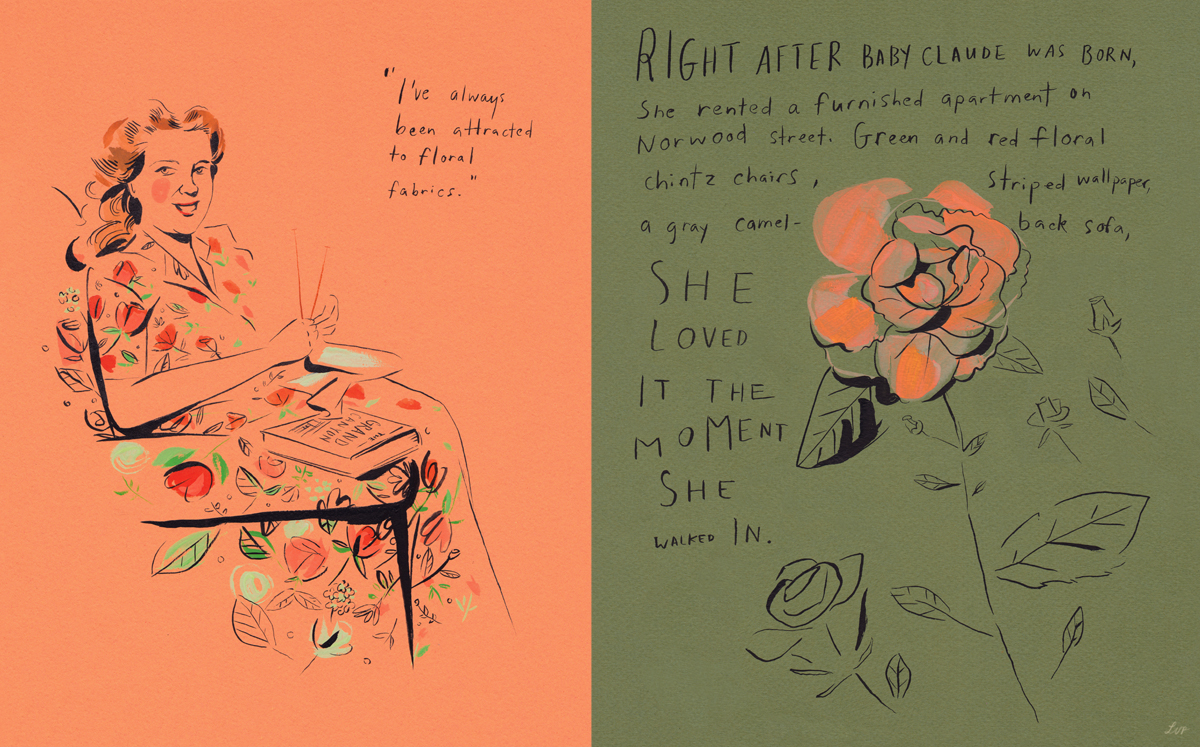 "I've always
been attracted
to floral
fabrics."
THE
GRAND
CANYON
RIGHT AFTER BABY CLAUDE WAS BORN,
She rented a furnished apartment on
Norwood street. Green and red floral
chintz chairs, Striped wallpaper,
a gray camel- back sofa,
SHE
LOVED
IT THE
MOMENT
SHE
WALKED IN.